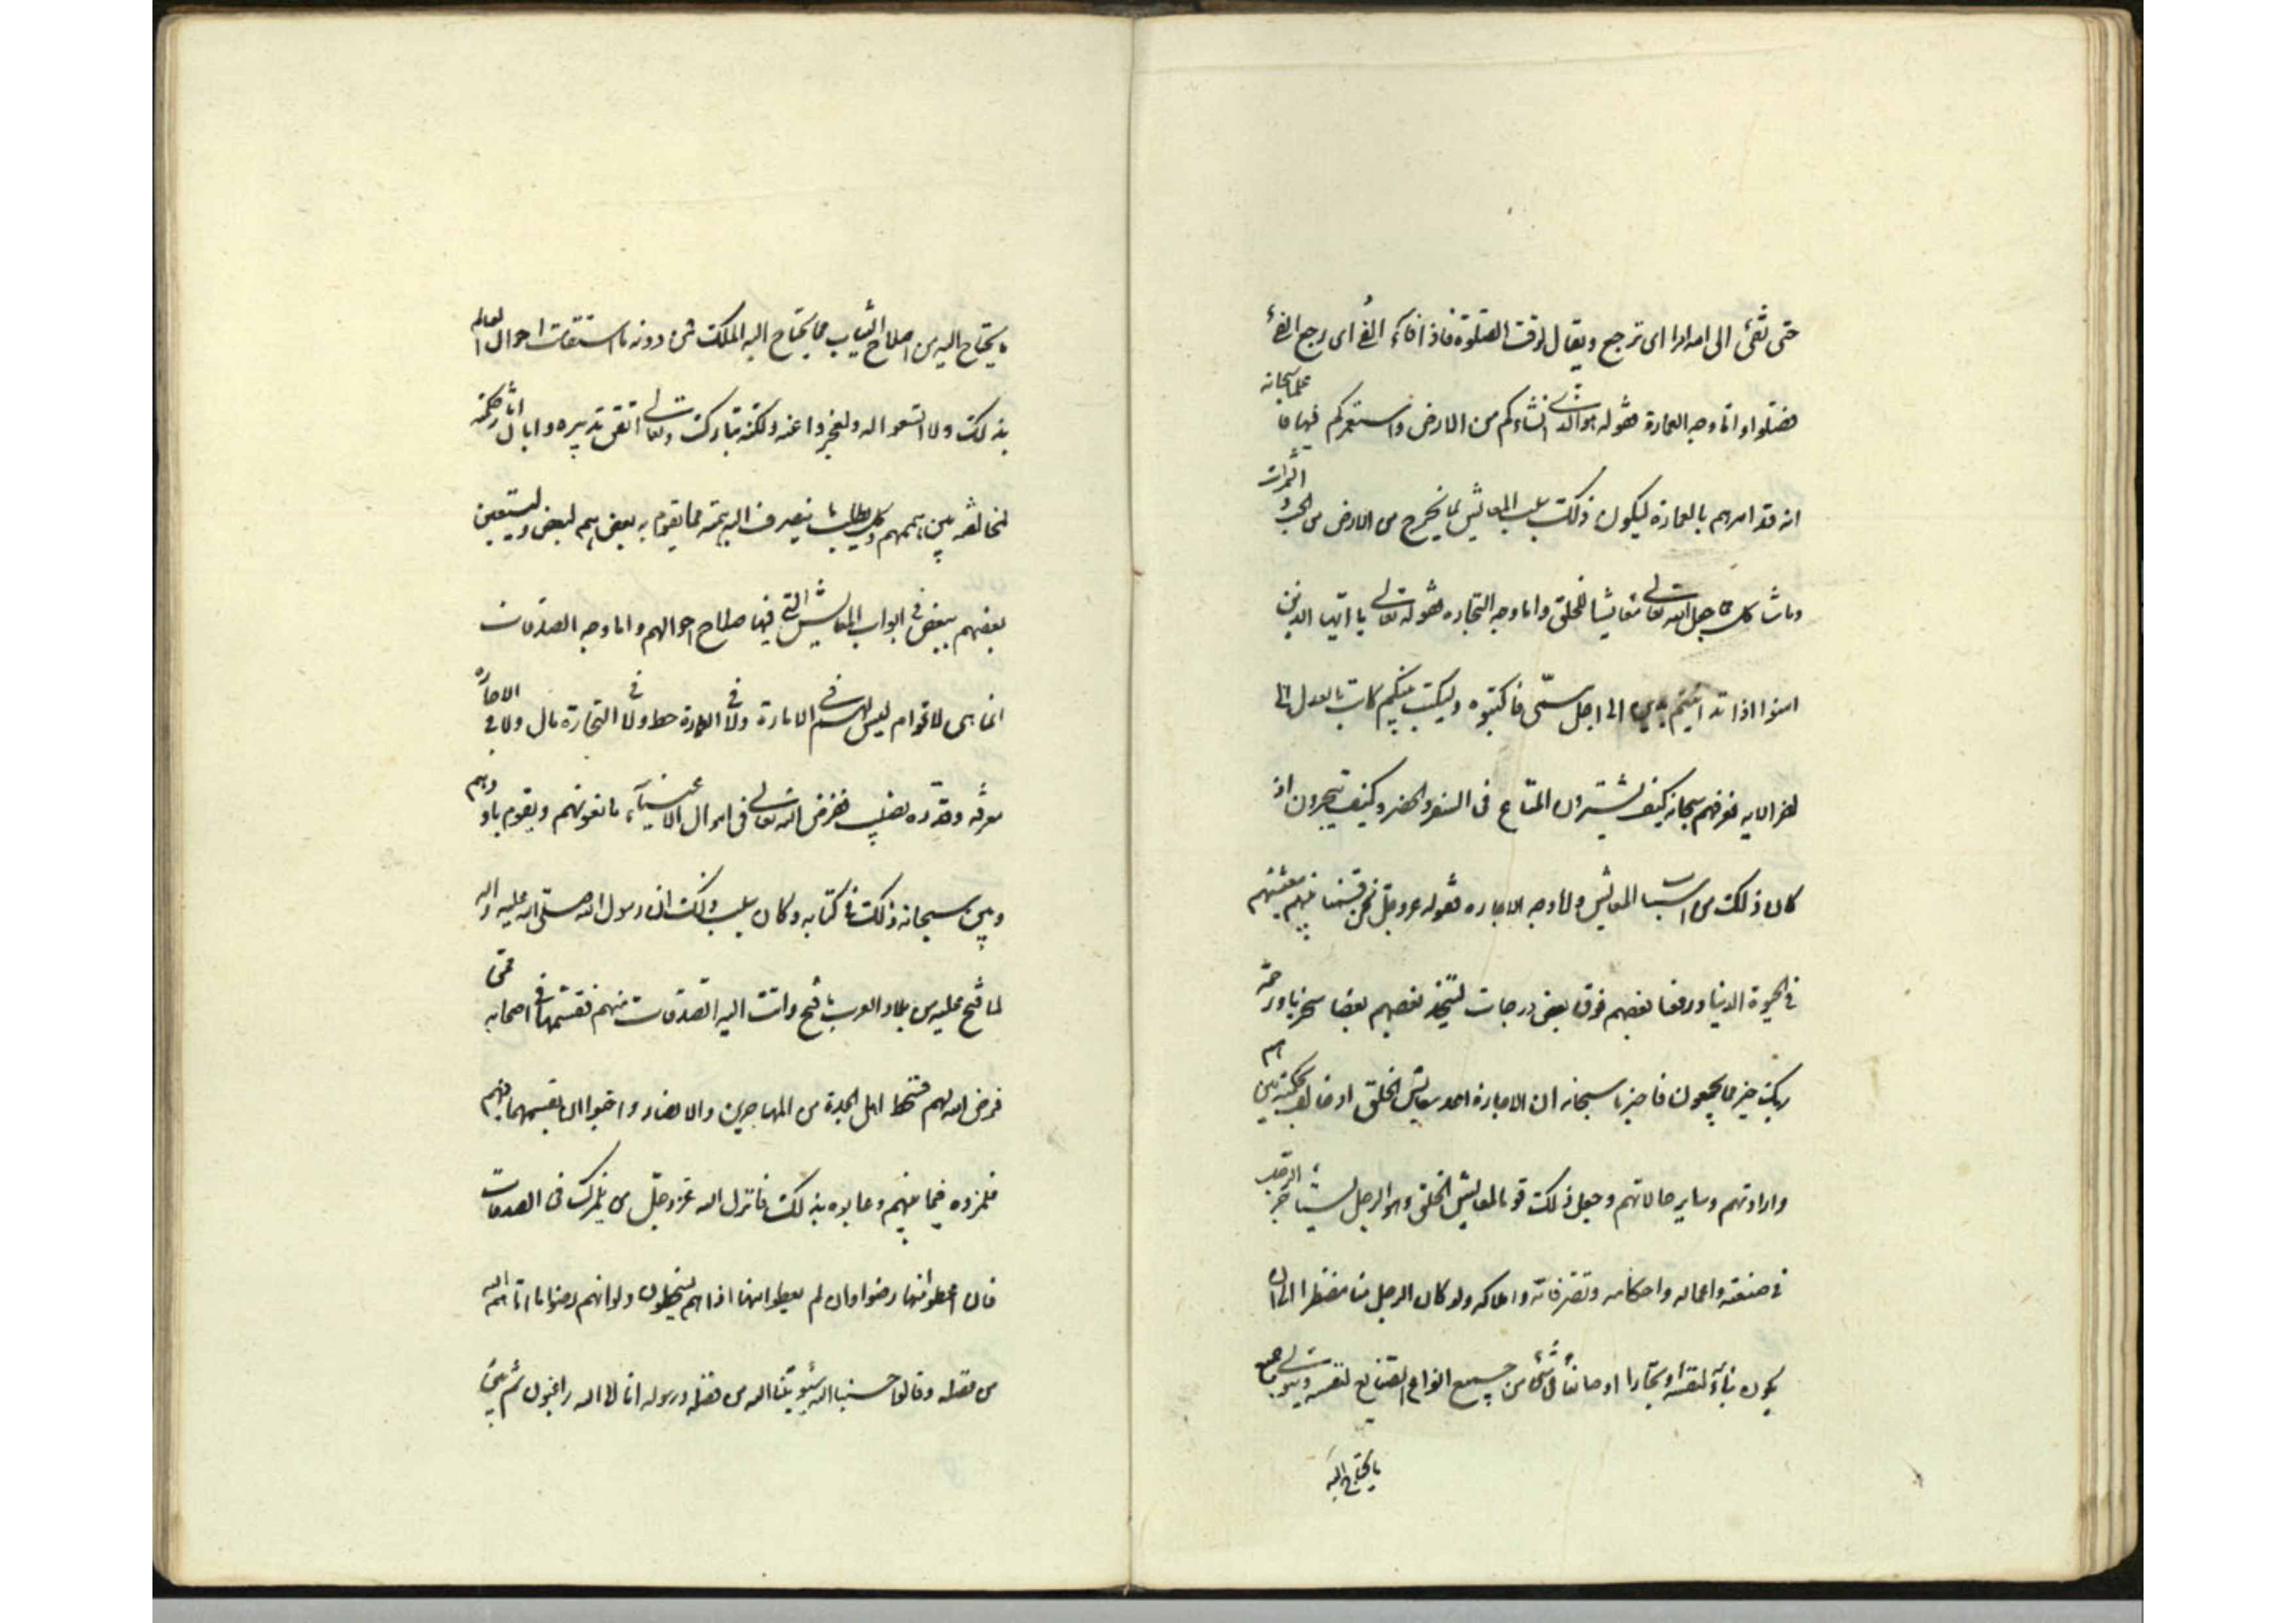 حتى تفئ الى امر الله اى ترجع ويقال لوقت الصلوة فاذا فآء الفئ اى رجع الفئ
فصلوا واما وجه العمارة فقوله هو الذى انشاءكم من الارض واستعمركم فيها فاعلمنا سبحانه
انه قد امرهم بالعمارة ليكون ذلك سبب المعايش بما يخرج من الارض من الحب و الثمرات
وما شاكل مما جعل الله تعالى معايشا للخلق واما وجه التجاره فقوله تعالى يا ايها الذين
امنوا اذا تداينتم بدين الى اجل مسمّى فاكتبوه وليكتب بينكم كاتب بالعدل الى
اخر الايه فعرفهم سبحانه كيف يشترون المتاع فى السفر والحضر وكيف يتجرون اذ
كان ذلك من اسباب المعايش واما وجه الاجاره فقوله عز وجل نحن قسمنا بينهم معيشتهم
فى الحيوة الدنيا ورفعنا بعضهم فوق بعض درجات ليتخذ بعضهم بعضا سخريا ورحمة
ربك خير مما يجمعون فاخبرنا سبحانه ان الاجارة احد معايش الخلق اذ خالف بحكمته بين هممهم
واراداتهم وساير حالاتهم وجعل ذلك قواما لمعايش الخلق وهو الرجل يستأجر الرجل
فى صنعته واعماله واحكامه وتصرفاته واملاكه ولو كان الرجل منا مضطرا الى ان
يكون بناء لنفسه او نجارا او صانعا فى شئ من جميع انواع الصنايع لنفسه ويتولى جميع
ما يحتاج اليه
ما يحتاج اليه من اصلاح الثياب مما يحتاج اليه الملك فمن دونه ما استقامت احوال العالم
بذلك ولا اتسعوا له ولعجزوا عنه ولكنه تبارك وتعالى اتقن تدبيره وابان اثار حكمته
لمخالفته بين هممهم وكل يطلب ما ينصرف اليه همته مما يقوم به بعضهم لبعض وليستعين
بعضهم ببعض فى ابواب المعايش التى فيها صلاح احوالهم واما وجه الصدقات
انما هى لاقوام ليس لهم فى الامارة ولا فى العمارة حظ ولا فى التجارة مال ولا فى الاجاره
معرفه وقدره نصيب ففرض الله تعالى فى اموال الاغنيآء ما يقوتهم ويقوم باودهم
وبين سبحانه ذلك فى كتابه وكان سبب ذلك ان رسول الله صلى الله عليه واله
لما فتح عليه من بلاد العرب ما فتح واتت اليه الصدقات منهم فقسمها فى اصحابه ممن
فرض الله لهم فسخط اهل الجدة من المهاجرين والانصار واحبوا ان يقسمها فيهم
فلمزوه فيما بينهم وعابوه بذلك فانزل الله عز وجل من يلمزك فى الصدقات
فان اعطوا منها رضوا وان لم يعطوا منها اذا هم يسخطون ولو انهم رضوا ما اتاهم الله
من فضله وقالوا حسبنا الله سيؤتينا الله من فضله ورسوله انا الى الله راغبون ثم بين